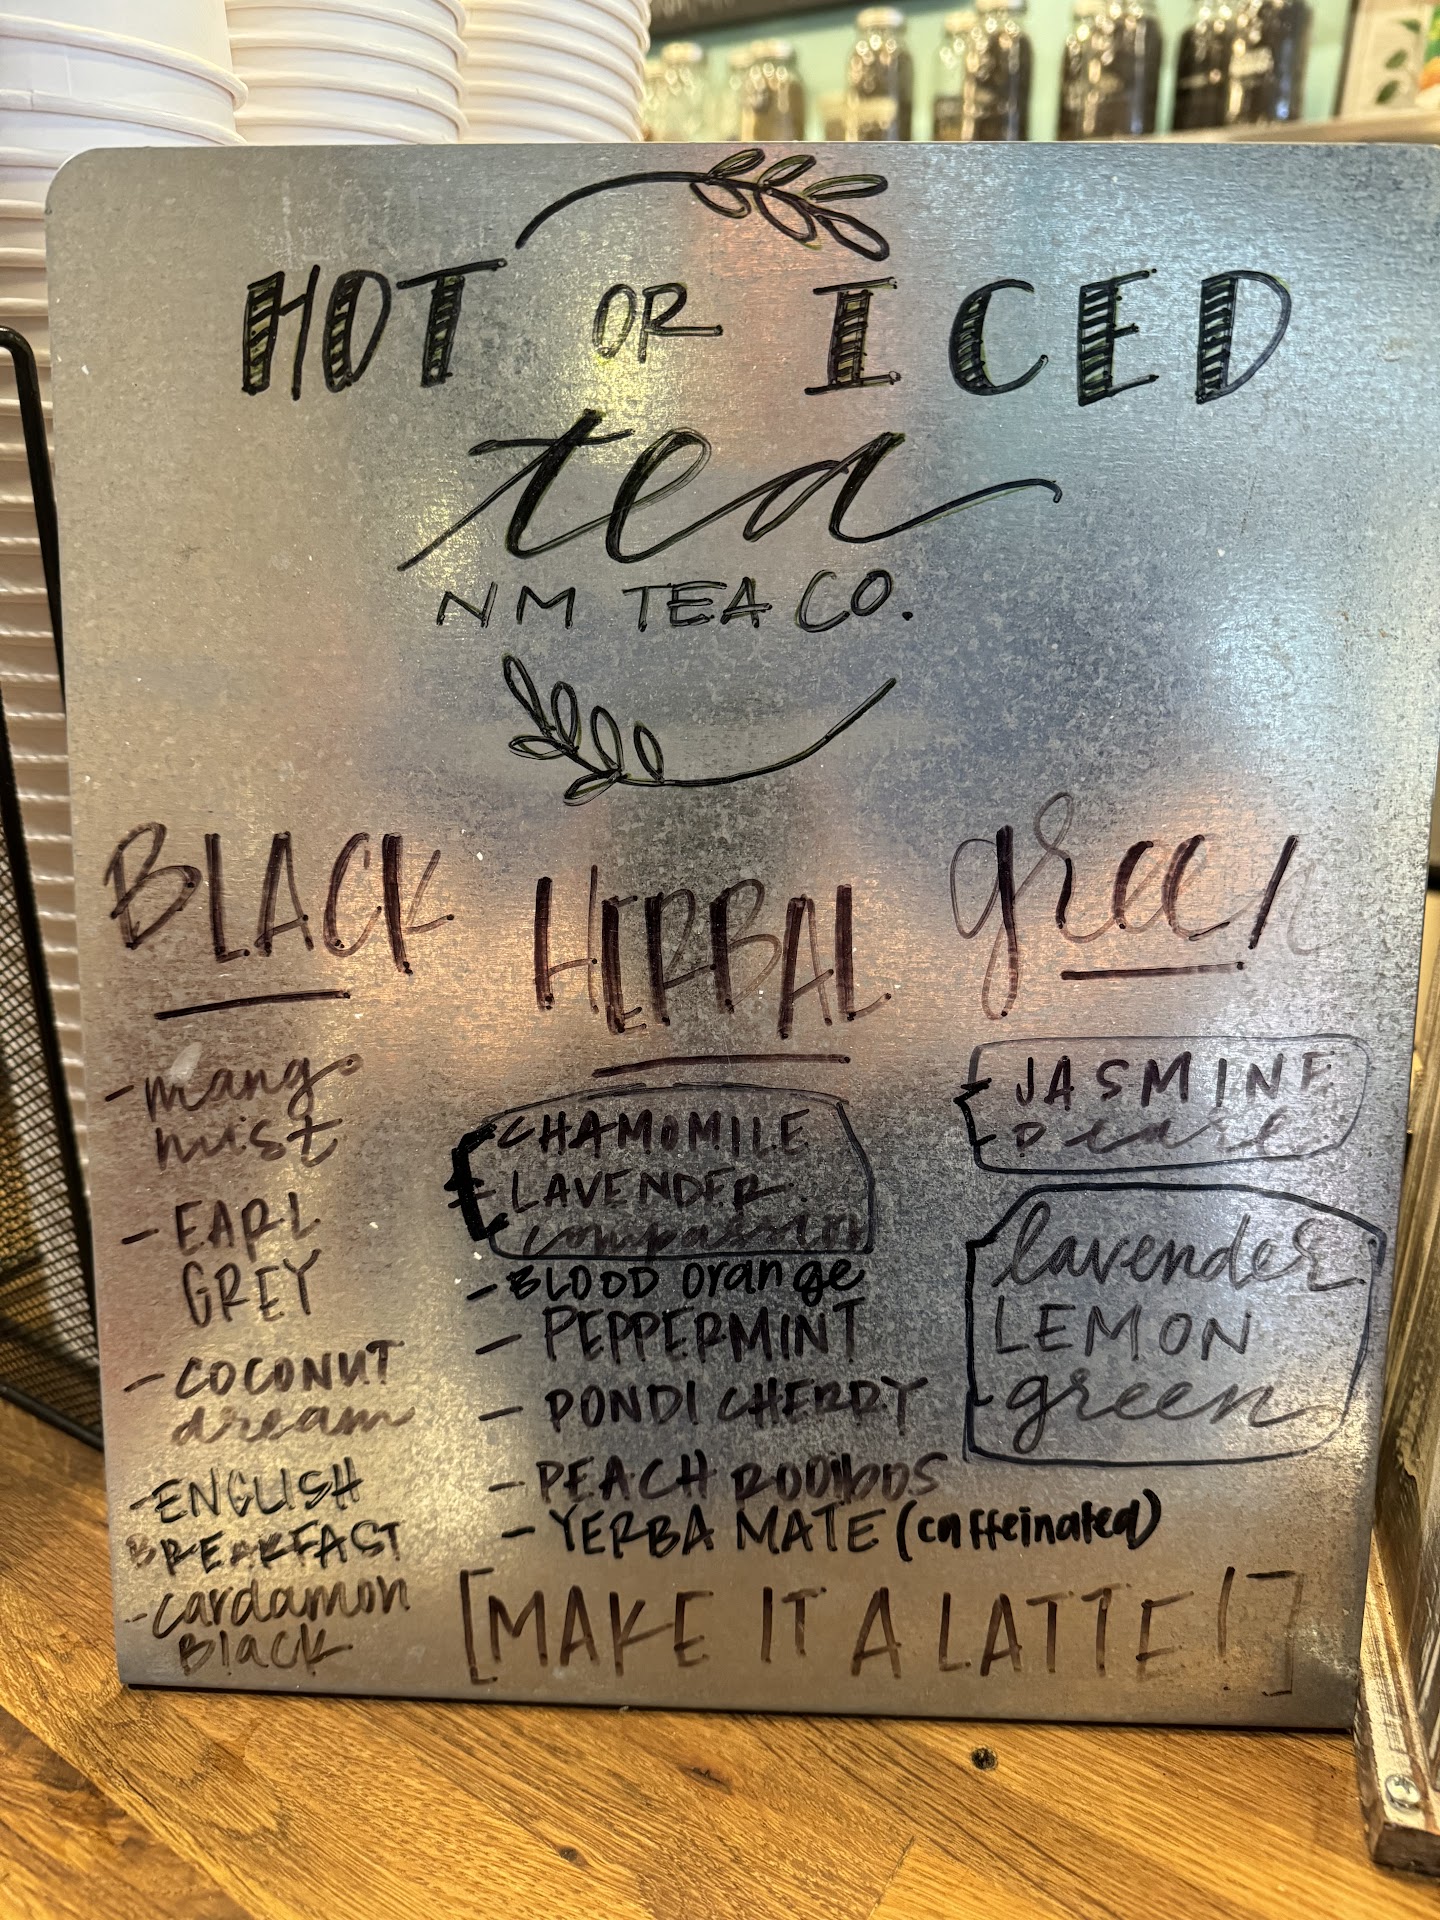 HOT OR ICED
tea
NM TEA CO.
BLACK
- mango
mist
- EARL
GREY
- COCONUT
dream
- ENGLISH
BREAKFAST
- cardamon
Black
HERBAL
- CHAMOMILE
LAVENDER
compassion
- BLOOD orange
- PEPPERMINT
- PONDICHERRY
- PEACH ROOIBOS
- YERBA MATE (caffeinated)
green
- JASMINE
pearl
lavender
LEMON
- green
[MAKE IT A LATTE!]